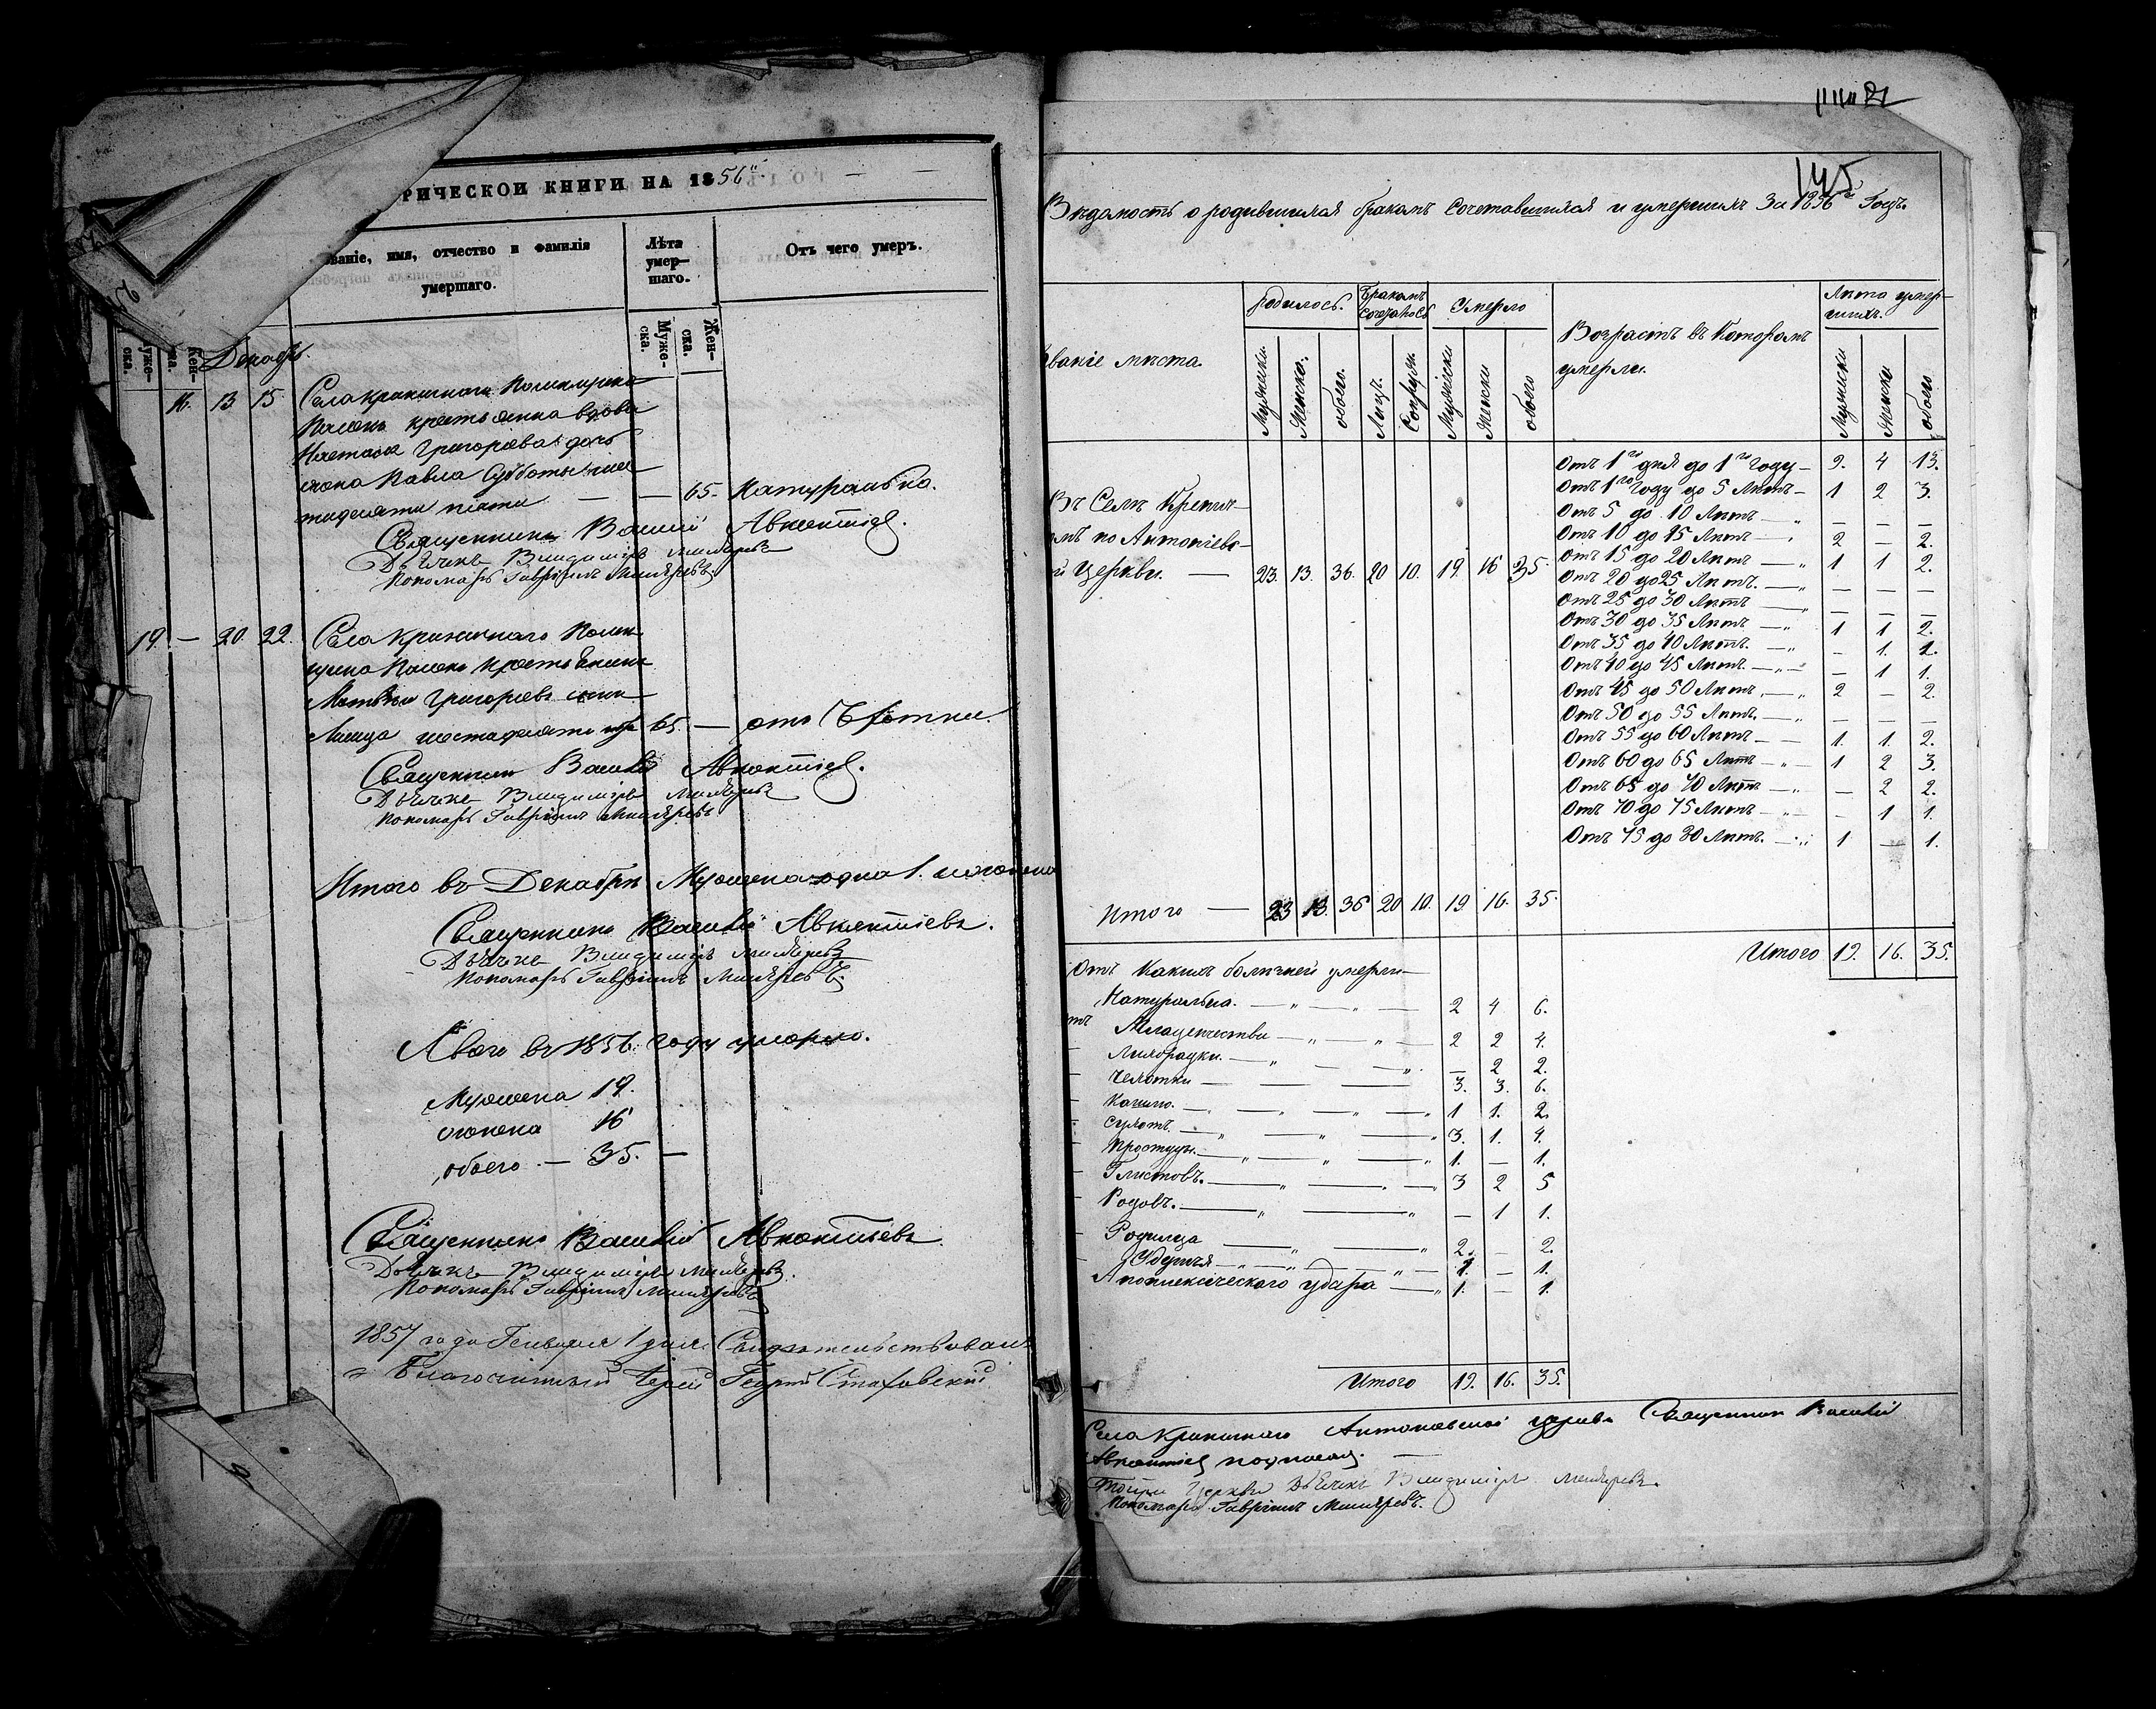 РИЧЕСКОЙ КНИГИ НА 1856й.
ваніе, имя, отчество и фамилія умершаго.
Лѣта умер—шаго.
Отъ чего умеръ.
Муже-ска.
Жен-ска.
Декабрь.
16. 13 15 Села Криничнаго Помѣщика
крестьянка вдова
Григорьева дочь
Павла Субботы
тидесяти пяти — — 65. Натурально.
Священникъ Василій Авксентіев.
Дьячекъ Владиміръ
Пономарь Гавріилъ
19. — 20. 22. Села Криничнаго Помѣ-
щика крестьянинъ
Матвѣй Григорьевъ сынъ
65. — отъ Чахотки.
Священникъ Василій Авксентіев.
Дьячекъ Владиміръ
Пономарь Гавріилъ
Итого въ Декабрѣ Мужеска одна 1. и женска
Священникъ Василій Авксентіевъ.
Дьячекъ Владиміръ
Пономарь Гавріилъ
А всего въ 1856. году умерло.
Мужеска 19.
женска 16
обоего — 35. —
Священникъ Василій Авксентіевъ
Дьячекъ Владиміръ
Пономарь Гавріилъ
1857 года Генваря 1 дня. Свидѣтельствовалъ
Благочинный Іерей Георгій
145
Вѣдомость о родившихся бракомъ сочетавшихся и умершихъ за 1856й Годъ.
ваніе мѣста.
родилось.
Бракомъ сочеталось
Умерло
Возрастъ въ Которомъ умерли.
Лѣта умер-шихъ.
Мужески Женски. обоего. Лицъ. Супруж. Мужески Женски обоего
Мужески Женски обоего
Отъ 1го дня до 1го Году — 9. 4 13.
Отъ 1го Году до 5 Лѣтъ — 1 2 3.
Отъ 5 до 10 Лѣтъ — — — —
Отъ 10 до 15 Лѣтъ — 2 — 2.
Отъ 15 до 20 Лѣтъ — 1 1 2.
Отъ 20 до 25 Лѣтъ. — — — —
Отъ 25 до 30 Лѣтъ — — — —
Отъ 30 до 35 Лѣтъ — 1 1 2.
Отъ 35 до 40 Лѣтъ. — - 1. 1.
Отъ 40 до 45 Лѣтъ. — — 1 1.
Отъ 45 до 50 Лѣтъ. — 2 — 2.
Отъ 50 до 55 Лѣтъ. — — — —
Отъ 55 до 60 Лѣтъ — 1. 1. 2.
Отъ 60 до 65 Лѣтъ — 1 2 3.
Отъ 65 до 70 Лѣтъ — — 2 2.
Отъ 70 до 75 Лѣтъ — - 1 1.
Отъ 75 до 80 Лѣтъ. — 1 — 1.
Въ Селѣ Кринич-
омъ по Антоніево-
й Церкви. — 23. 13. 36. 20 10. 19. 16 35.
Итого — 23 13. 36 20 10. 19. 16. 35.
Итого 19. 16. 35.
Отъ Какихъ болѣзней умерли
Натурально. — 2 4 6.
Младенчества — 2 2 4.
Лихорадки. — — 2 2.
Чахотки — 3. 3. 6.
Кашлю. — 1 1. 2.
Сухотъ. — 3. 1. 4.
Простуды. — 1. — 1.
Глистовъ. — 3 2 5
Родовъ. — — 1 1.
Родимца — 2. — 2.
Удушья — 1. — 1.
Апоплексическаго удара — 1. — 1.
Итого 19. 16. 35.
Села Криничнаго Антоніевской церкви Священникъ Василій
Авксентіев
Тойже Церкви Дьячекъ Владиміръ
Пономарь Гавріилъ